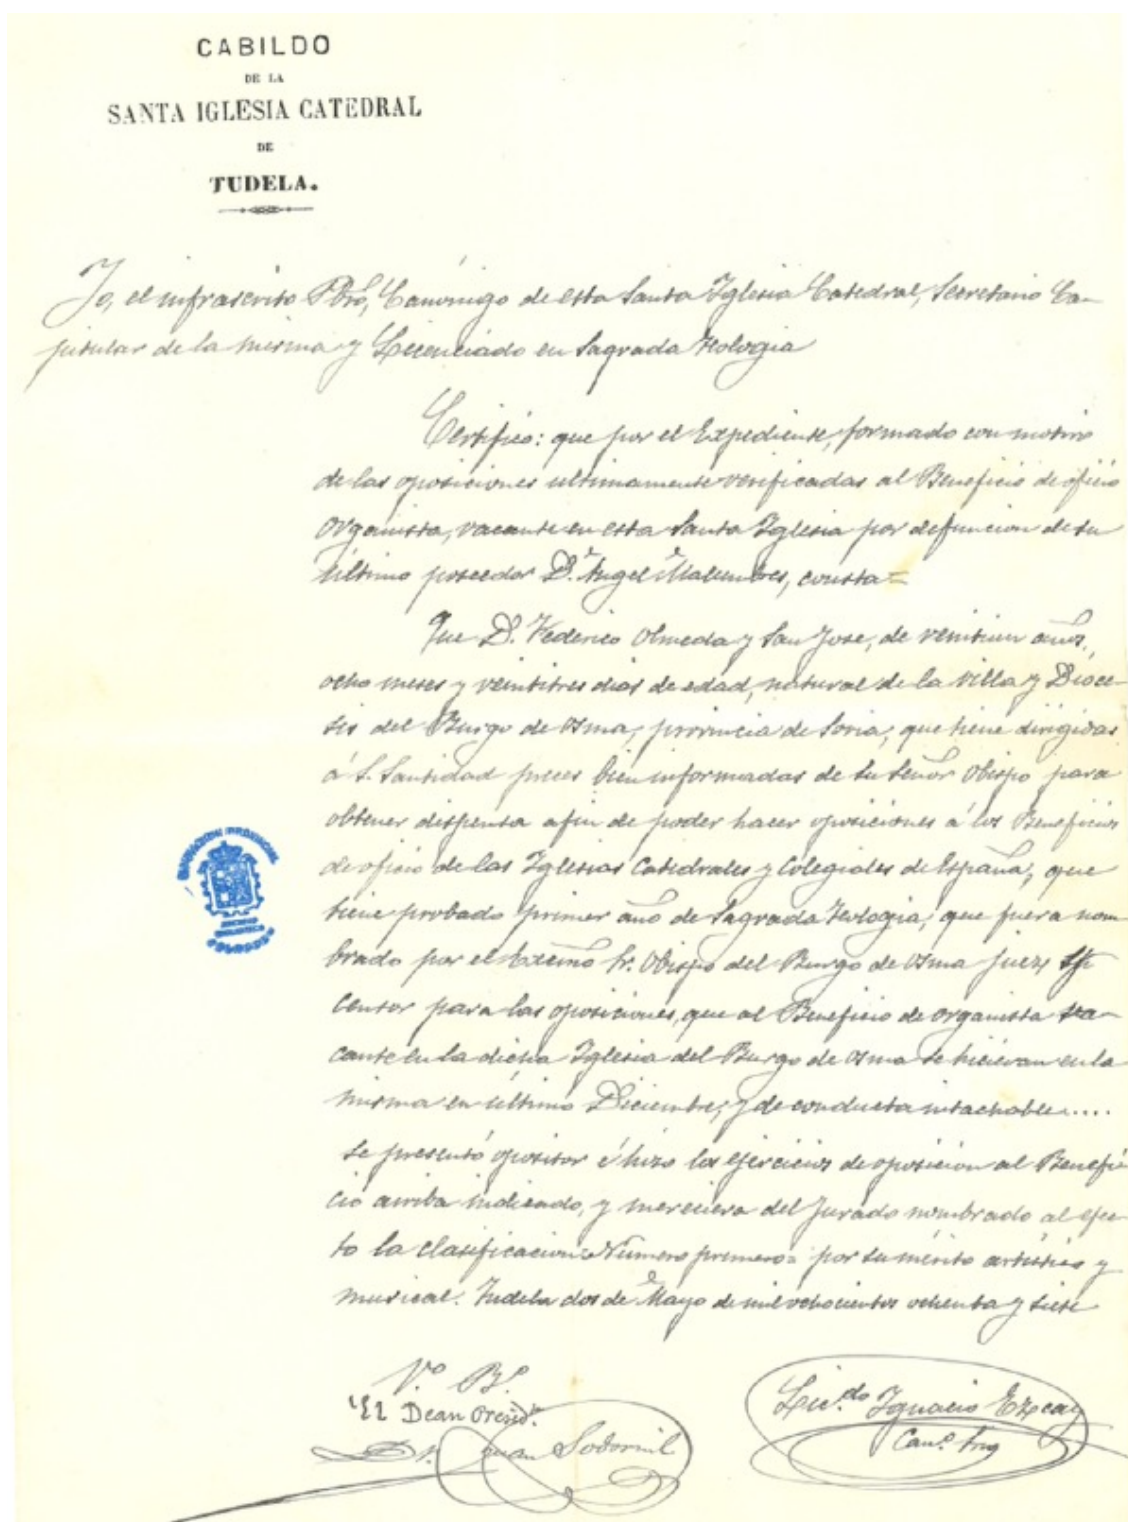 CABILDO
DE LA
SANTA IGLESIA CATEDRAL
DE
TUDELA.
Yo, el infrascrito Pbro, Canónigo de esta Santa Iglesia Catedral, Secretario Ca-
pitular de la misma y Licenciado en Sagrada Teologia
Certifico: que por el Expediente, formado con motivo
de las oposiciones ultimamente verificadas al Beneficio de oficio
Organista, vacante en esta Santa Iglesia por defuncion de su
último poseedor D. Angel Malumbres, consta=
Que D. Federico Olmeda y San Jose, de veintiun años,
ocho meses y veintitres dias de edad, natural de la villa y Dióce-
sis del Burgo de Osma, provincia de Soria, que tiene dirigidas
á S. Santidad preces bien informadas de su Señor Obispo para
obtener dispensa afin de poder hacer oposiciones á los Beneficios
de oficio de las Iglesias Catedrales y Colegiales de España, que
tiene probado primer año de Sagrada Teologia; que fuera nom-
brado por el Excmo Sr. Obispo del Burgo de Osma juez
censor para las oposiciones, que al Beneficio de organista va-
cante en la dicha Iglesia del Burgo de Osma se hicieran en la
misma en último Diciembre; y de conducta intachable....
se presentó opositor é hizo los ejercicios de oposicion al Benefi-
cio arriba indicado, y mereciera del Jurado nombrado al efec-
to la clasificacion=Número primero= por su mérito artístico y
musical. Tudela dos de Mayo de mil ochocientos ochenta y siete
V.º B.º
El Dean Presid.te
Dr. Juan Sodornil
Lic.do Ignacio Ezcay
Can.º Srio
DIPUTACION PROVINCIAL
BURGOS